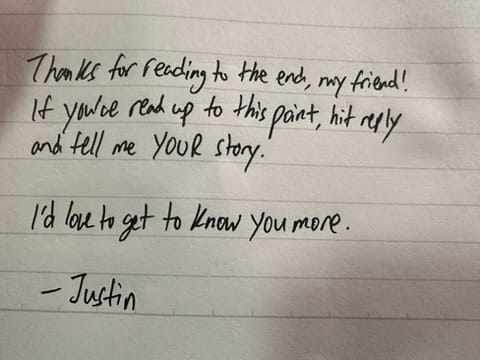 Thanks for reading to the end, my friend!
If you've read up to this point, hit reply
and tell me YOUR story.
I'd love to get to know you more.
- Justin